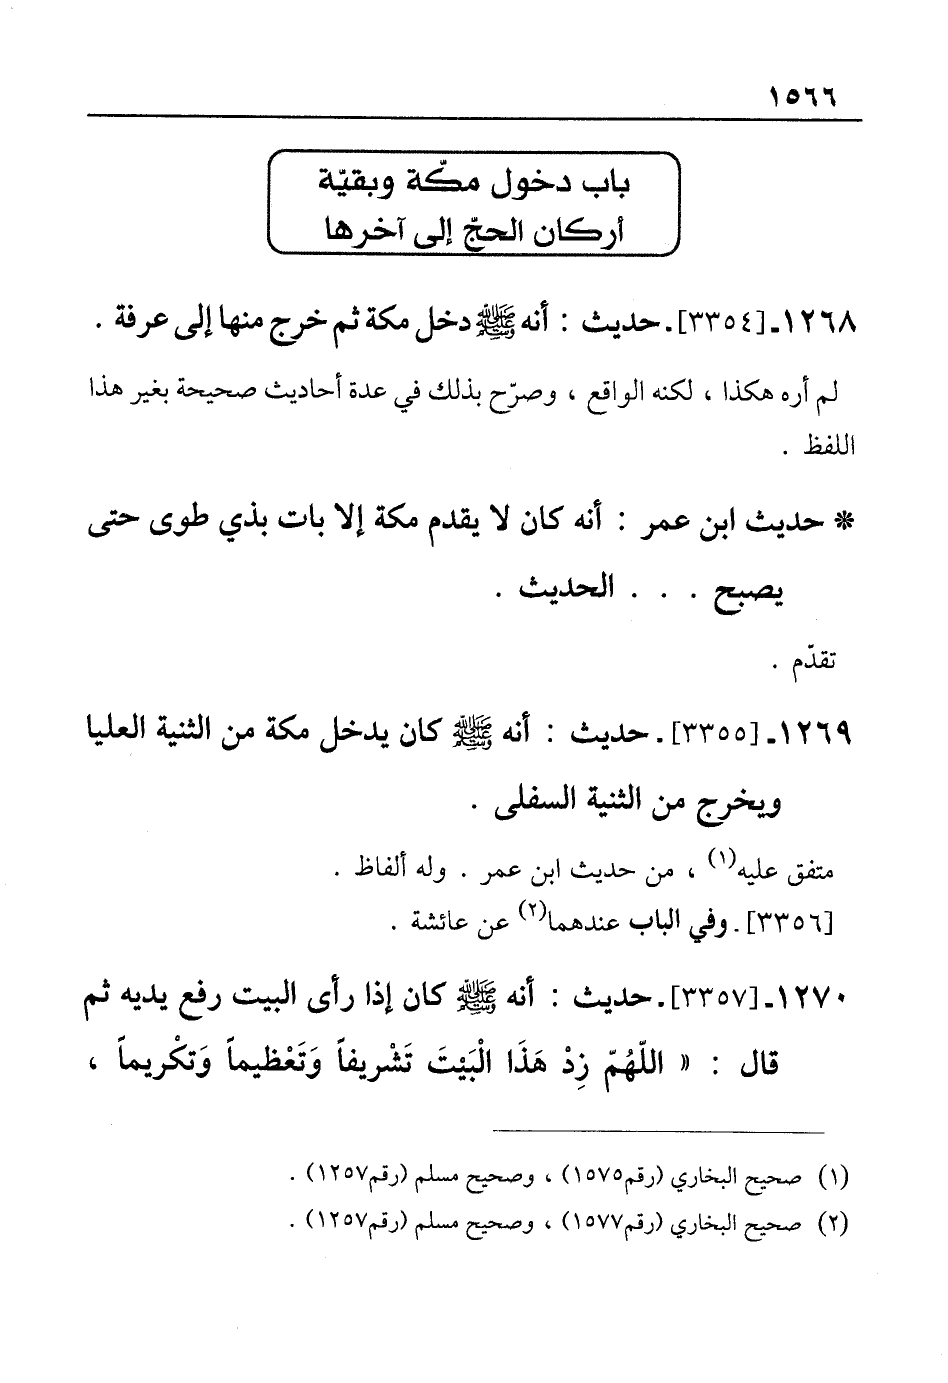 ١٥٦٦
باب دخول مكّة وبقيّة
أركان الحجّ إلى آخرها
١٢٦٨ـ [٣٣٥٤]. حديث : أنه ﷺ دخل مكة ثم خرج منها إلى عرفة .
لم أره هكذا ، لكنه الواقع ، وصرّح بذلك في عدة أحاديث صحيحة بغير هذا
اللفظ .
* حديث ابن عمر : أنه كان لا يقدم مكة إلا بات بذي طوى حتى
يصبح . . . الحديث .
تقدّم .
١٢٦٩ـ [٣٣٥٥]. حديث : أنه ﷺ كان يدخل مكة من الثنية العليا
ويخرج من الثنية السفلى .
متفق عليه(١) ، من حديث ابن عمر . وله ألفاظ .
[٣٣٥٦]. وفي الباب عندهما(٢) عن عائشة .
١٢٧٠ـ [٣٣٥٧]. حديث : أنه ﷺ كان إذا رأى البيت رفع يديه ثم
قال : « اللّهُمّ زِدْ هَذَا الْبَيْتَ تَشْرِيفاً وَتَعْظِيماً وَتَكْرِيماً ،
(١) صحيح البخاري (رقم١٥٧٥) ، وصحيح مسلم (رقم١٢٥٧) .
(٢) صحيح البخاري (رقم١٥٧٧) ، وصحيح مسلم (رقم١٢٥٧) .